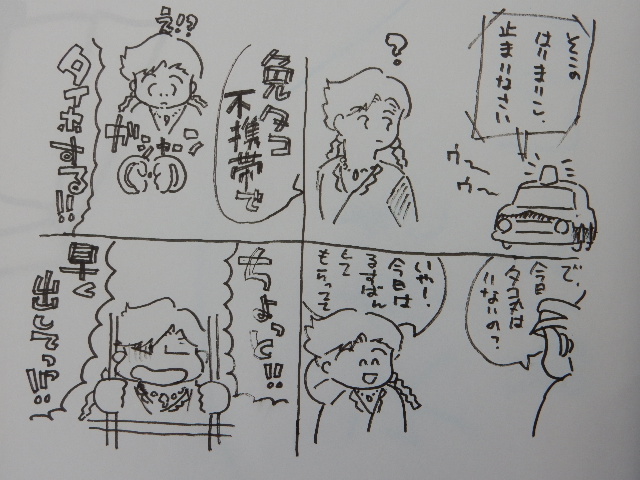 そこの
はりまりこ、
止まりなさい
ウ〜
ウ〜
?
免タコ
不携帯で
え!?
ガシャン
タイホする!!
で、
今日
いないの?
いやー、
今日は
るすばん
して
もらって
ちょっと!!
早く
言って!!